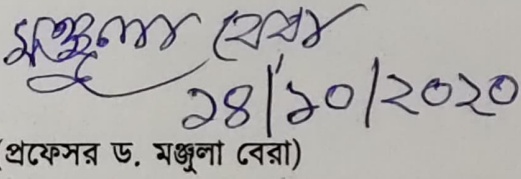 মঞ্জুলা বেরা
১৪/১০/২০২০
(প্রফেসর ড. মঞ্জুলা বেরা)